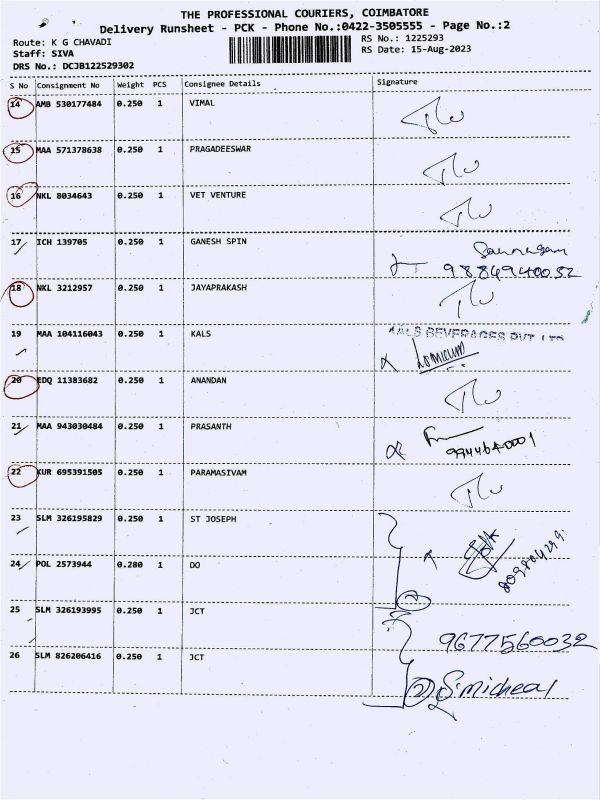 THE PROFESSIONAL COURIERS, COIMBATORE
Delivery Runsheet - PCK - Phone No.:0422-3505555 - Page No.:2
Route: K G CHAVADI
RS No.: 1225293
Staff: SIVA
RS Date: 15-Aug-2023
DRS No.: DCJB122529302
S No Consignment No Weight PCS Consignee Details Signature
14 AMB 530177484 0.250 1 VIMAL
15 MAA 571378638 0.250 1 PRAGADEESWAR
16 NKL 8034643 0.250 1 VET VENTURE
17 ICH 139705 0.250 1 GANESH SPIN
9884940052
18 NKL 3212957 0.250 1 JAYAPRAKASH
19 MAA 104116043 0.250 1 KALS
KALS BEVERAGES PVT LTD
20 EDQ 11383682 0.250 1 ANANDAN
21 MAA 943030484 0.250 1 PRASANTH
9944640001
22 KUR 695391505 0.250 1 PARAMASIVAM
23 SLM 326195829 0.250 1 ST JOSEPH
24 POL 2573944 0.280 1 DO
2
25 SLM 326193995 0.250 1 JCT
9677560032
26 SLM 826206416 0.250 1 JCT
2 S.micheal